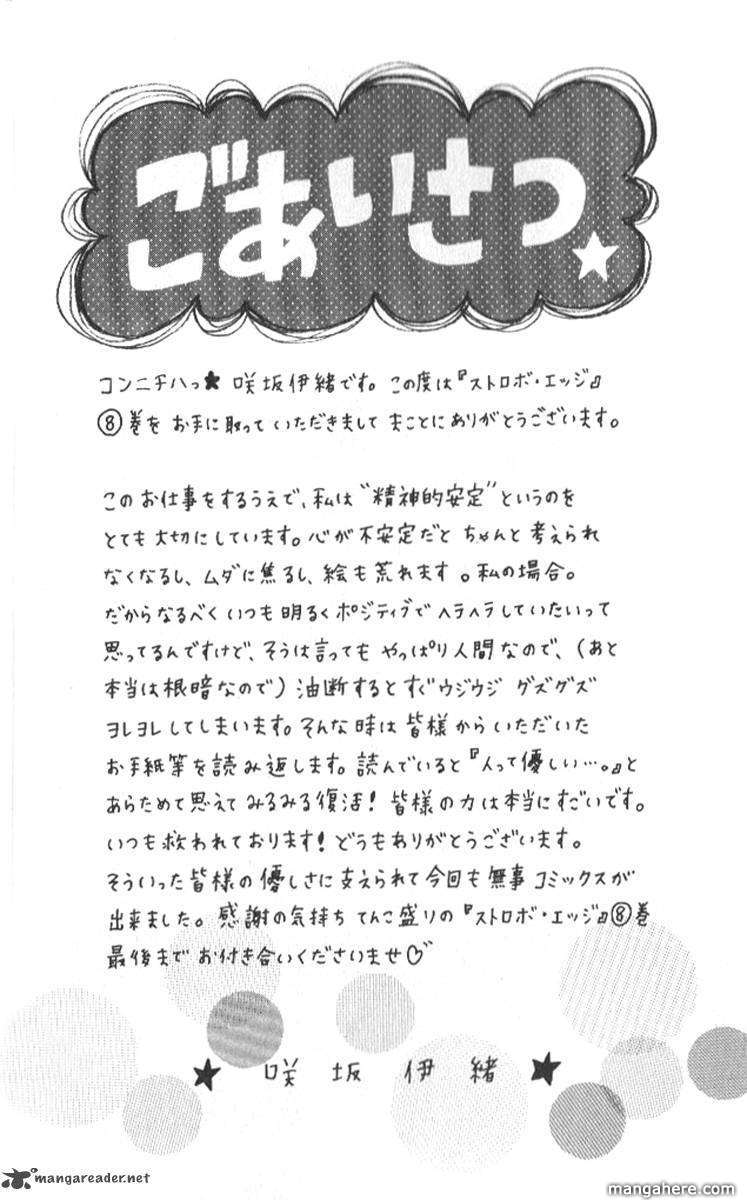 ごあいさつ☆
コンニチハっ★ 咲坂伊緒です。この度は『ストロボ・エッジ』
⑧巻を お手に取って いただきまして まことにありがとうございます。
このお仕事をするうえで、私は“精神的安定”というのを
とても大切にしています。心が不安定だと ちゃんと考えられ
なくなるし、ムダに焦るし、絵も荒れます。私の場合。
だからなるべくいつも明るくポジティブでヘラヘラしていたいって
思ってるんですけど、そうは言っても やっぱり人間なので、(あと
本当は根暗なので)油断するとすぐウジウジ グズグズ
ヨレヨレしてしまいます。そんな時は皆様からいただいた
お手紙等を読み返します。読んでいると『人って優しい…。』と
あらためて思えて みるみる復活!皆様の力は本当にすごいです。
いつも救われております!どうもありがとうございます。
そういった皆様の優しさに支えられて今回も無事コミックスが
出来ました。感謝の気持ち てんこ盛りの『ストロボ・エッジ』⑧巻
最後まで お付き合いくださいませ♡
★ 咲坂伊緒 ★
mangareader.net
mangahere.com